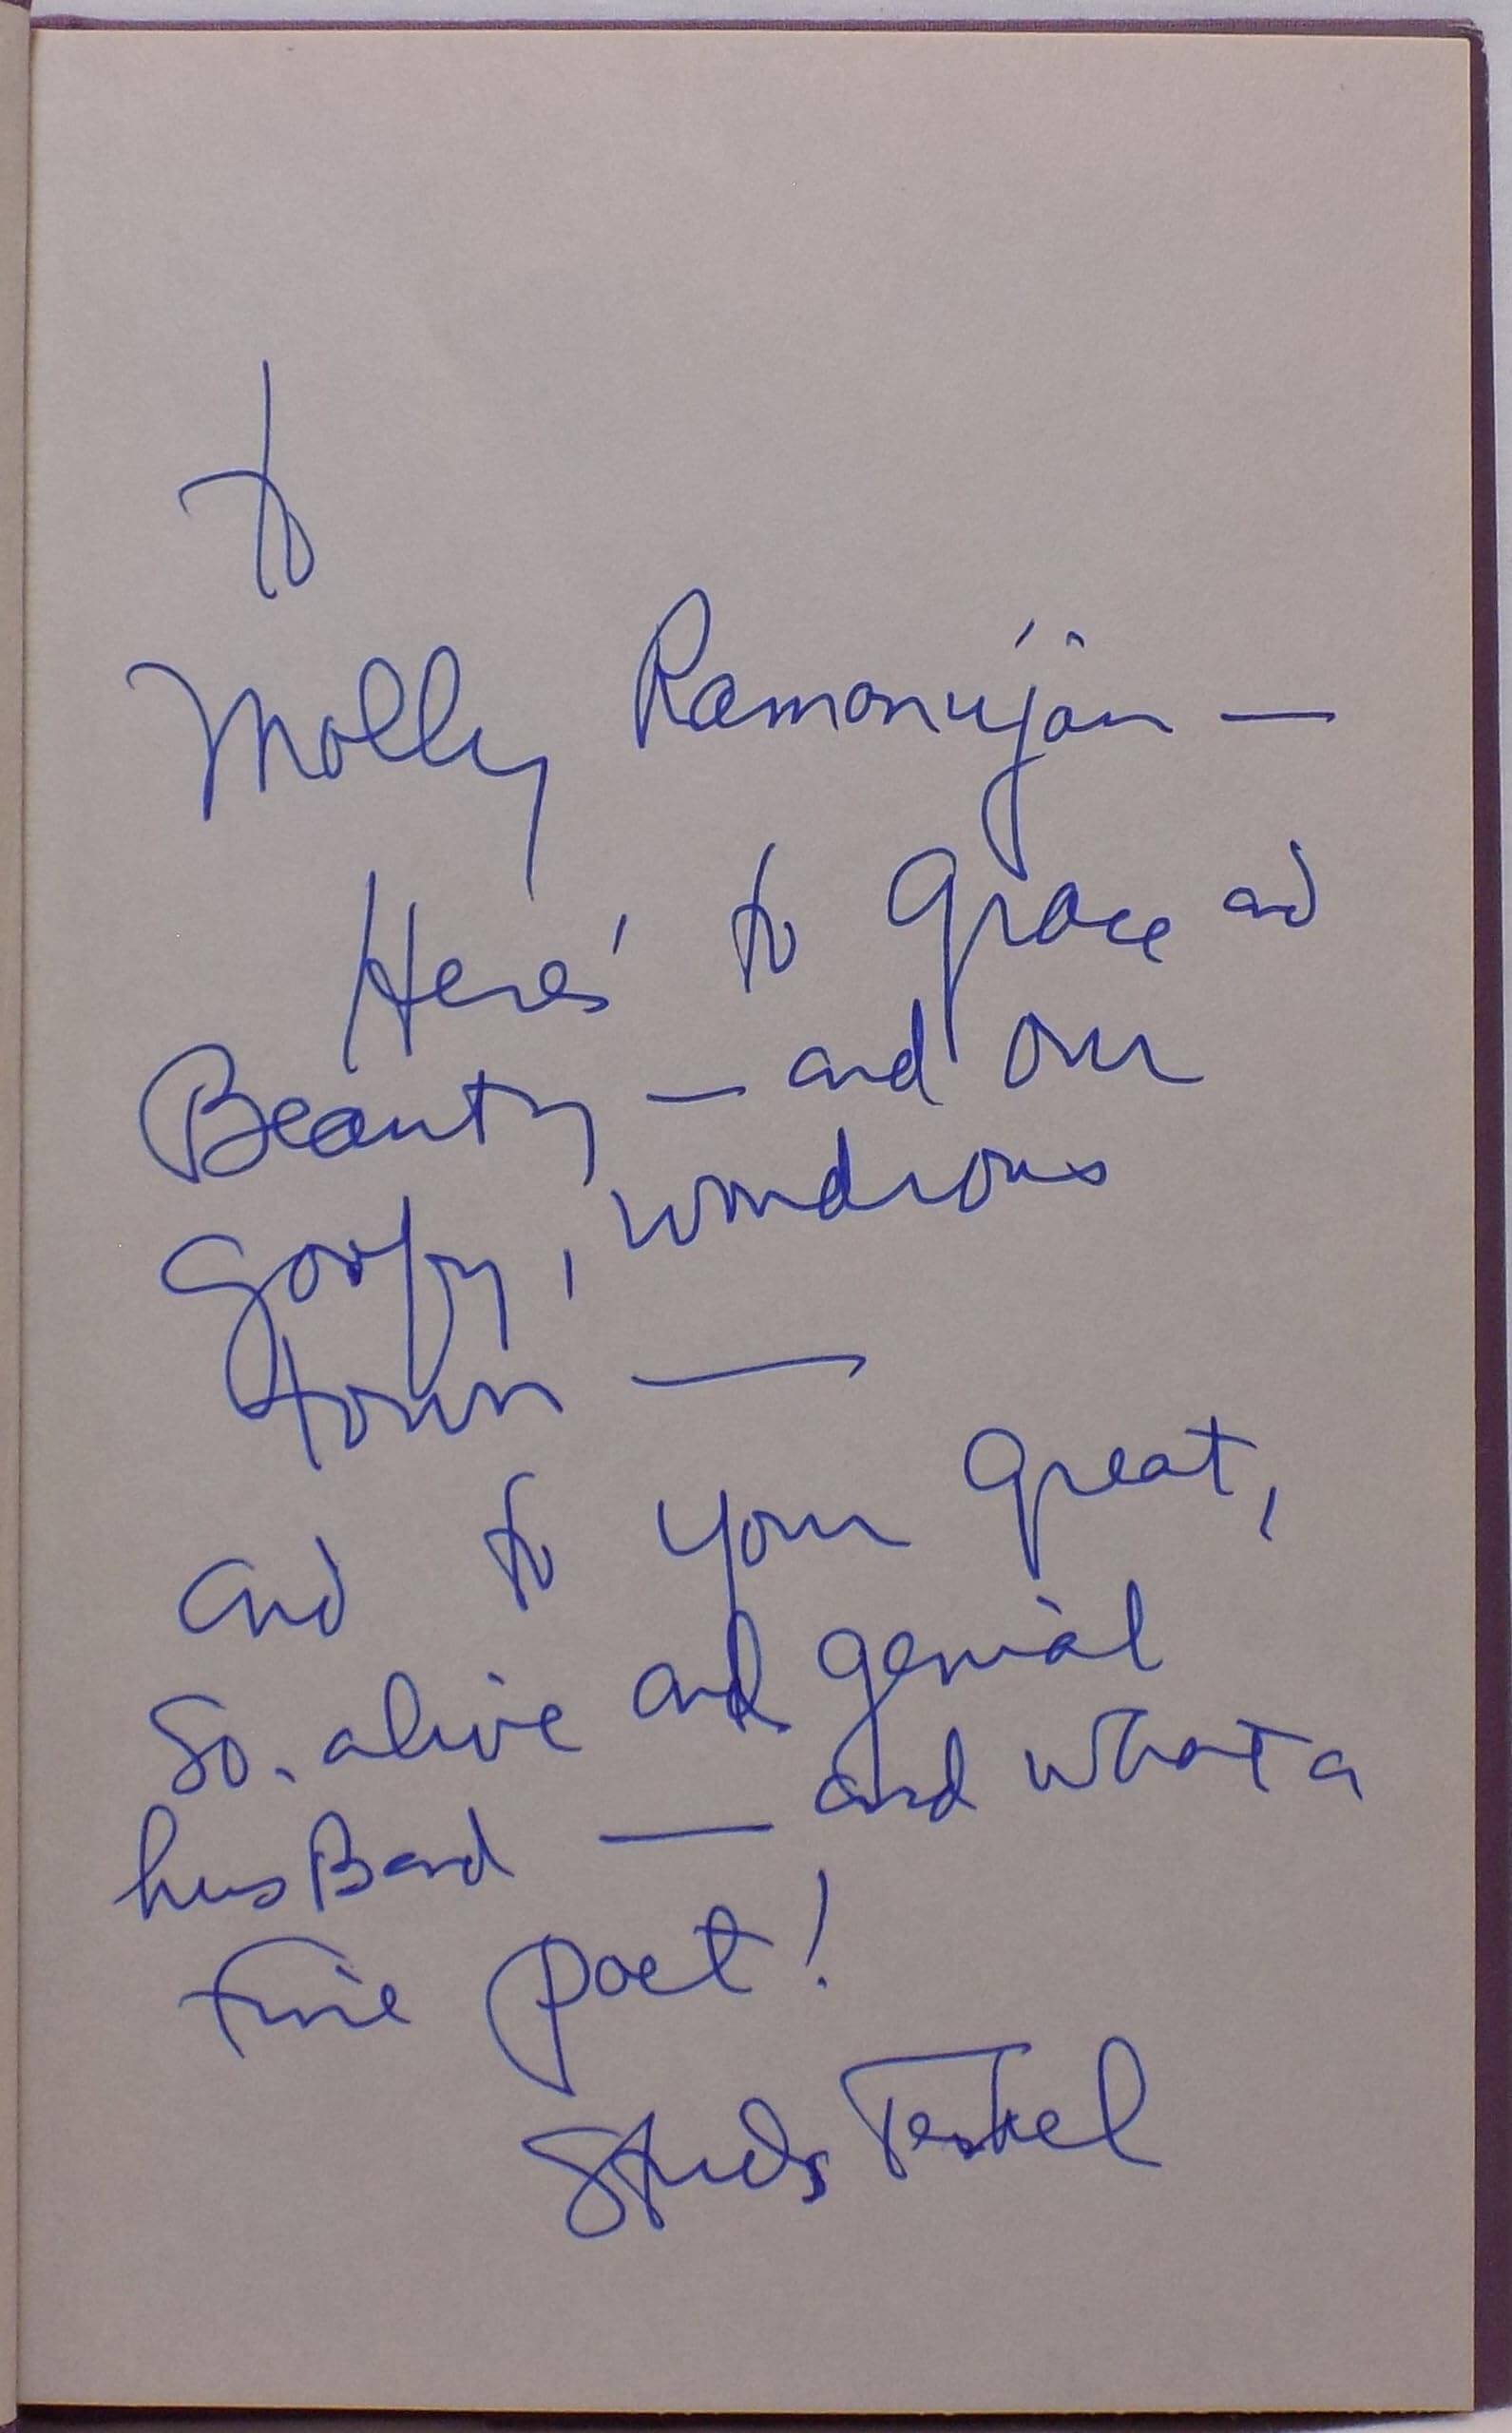 to
Molly Ramanujan —
Here's to Grace and
Beauty — and our
goofy, wondrous
town —
and to your great,
so alive and genial
husBand — and what a
fine poet!
Studs Terkel